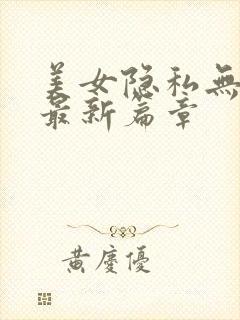 美女隐私無
最新篇章
黄慶優